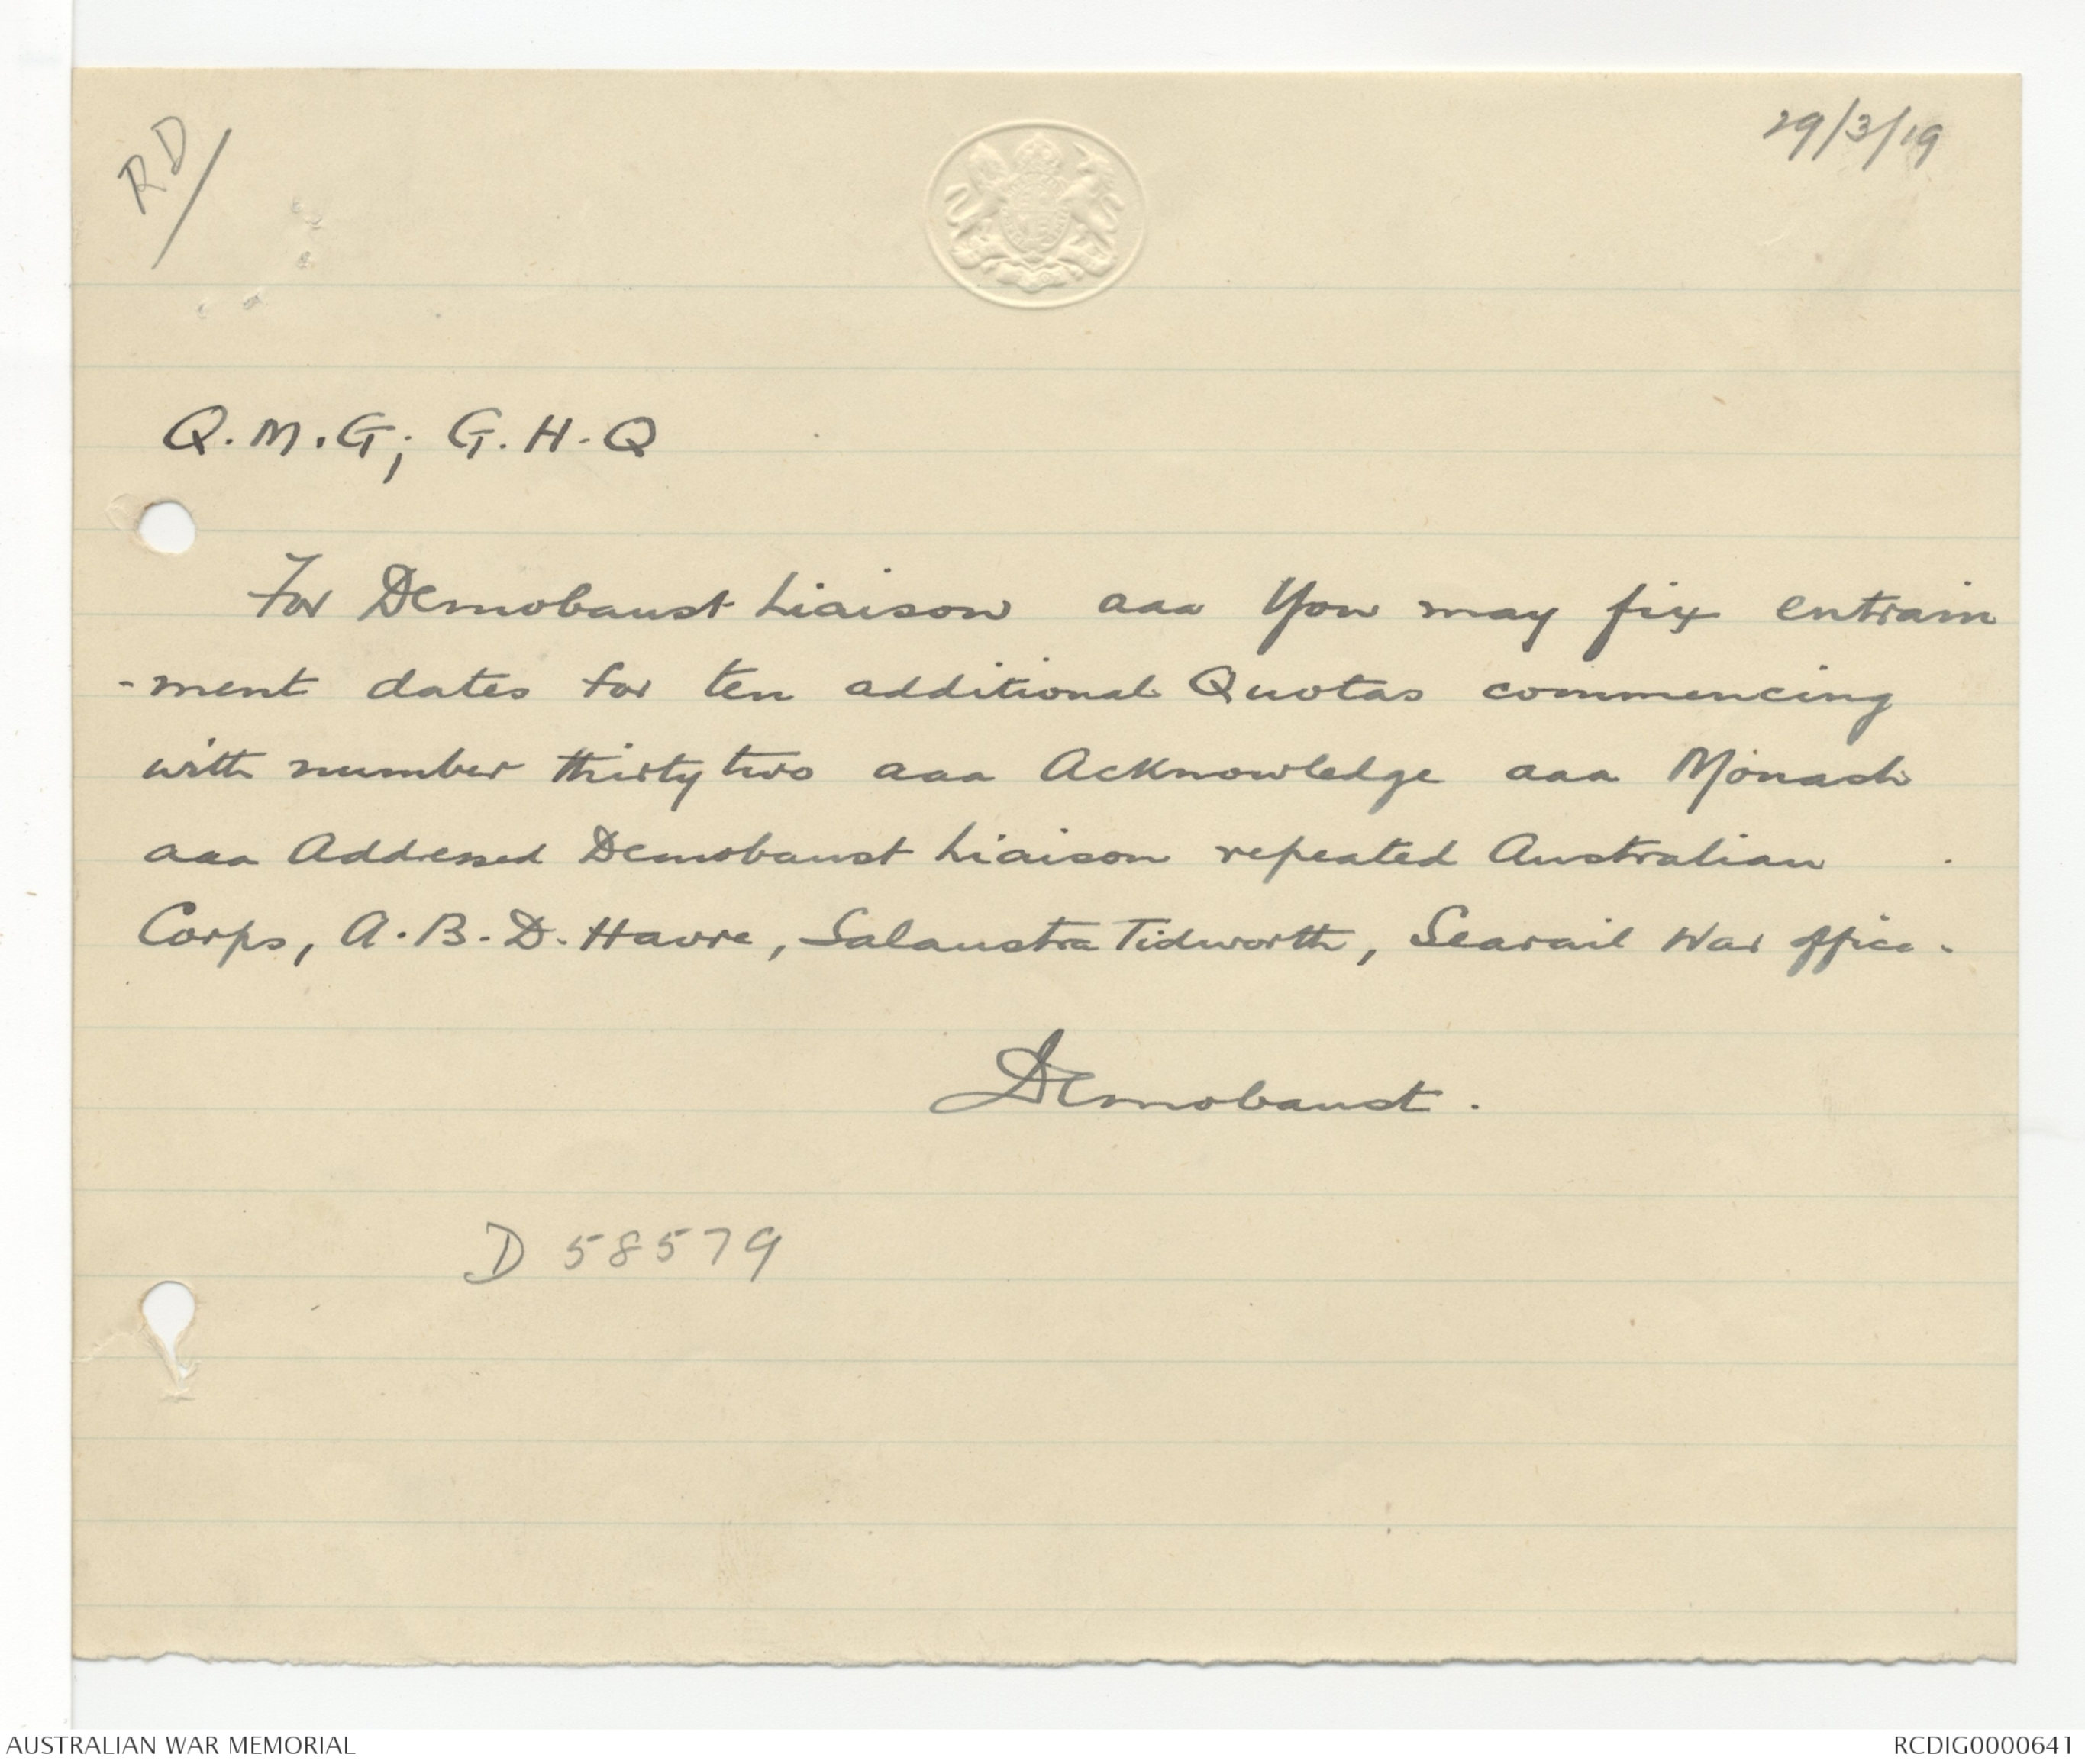 RD/
29/3/19
Q.M.G; G.H.Q
For Demobaust Liaison aaa You may fix entrain
-ment dates for ten additional Quotas commencing
with number thirty two aaa Acknowledge aaa Monash
aaa Addressed Demobaust Liaison repeated Australian
Corps, A.B.D. Havre, Salaustra Tidworth, Searail War Office.
Demobaust.
D 58579
AUSTRALIAN WAR MEMORIAL
RCDIG0000641